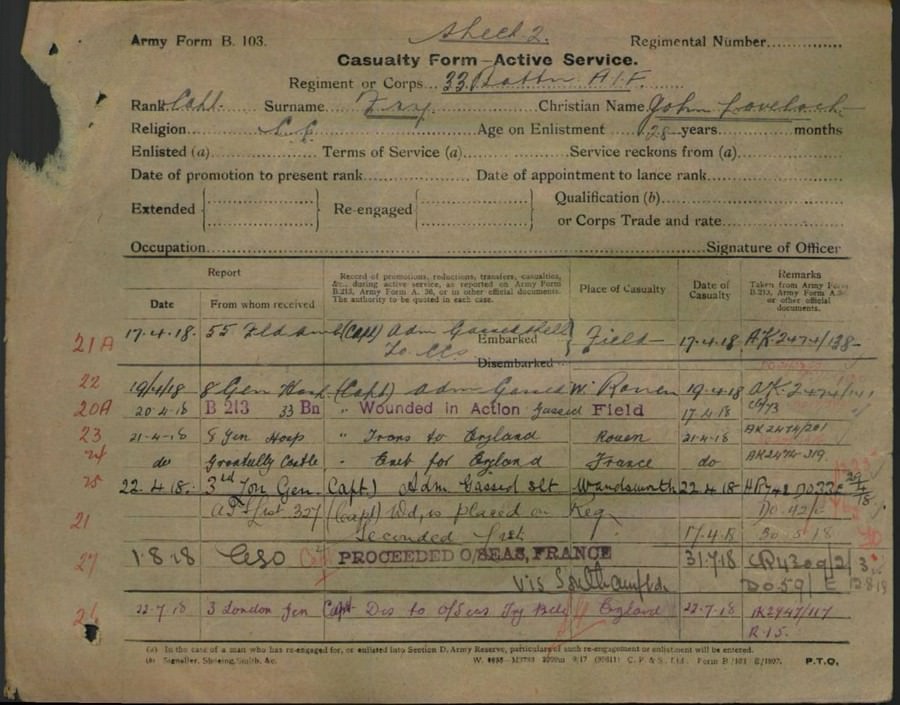 Army Form B. 103. Sheet 2. Regimental Number
Casualty Form—Active Service.
Regiment or Corps 33 Battn A.I.F.
Rank Capt. Surname Fry Christian Name John Lovelock
Religion Age on Enlistment 28 years months
Enlisted (a) Terms of Service (a) Service reckons from (a)
Date of promotion to present rank Date of appointment to lance rank
Extended Re-engaged Qualification (b)
or Corps Trade and rate
Occupation Signature of Officer
Report
Date From whom received
Record of promotions, reductions, transfers, casualties, &c., during active service, as reported on Army Form B.213, Army Form A. 36, or in other official documents. The authority to be quoted in each case.
Place of Casualty
Date of Casualty
Remarks
Taken from Army Form B.213, Army Form A.36 or other official documents.
21A 17.4.18. 55 Fld Amb (Capt) Adm Gassed Shell Embarked Field 17.4.18 AK.2474/138
To CCS Disembarked
22 19/4/18 8 Gen Hosp (Capt) adm Gassed W. Rouen 19.4.18 AK 2474/
20A 20.4.18 B 213 33 Bn " Wounded in Action Gassed Field 17.4.18
23 21-4-18 8 Gen Hosp " Trans to England Rouen 21-4-18 AK2474/201
24 do Grantully Castle " Emb for England France do AK2474-319.
25 22.4.18. 3rd Lon Gen. Capt.) Adm Gassed Slt Wandsworth 22.4.18
21 List 327 (Capt) Wd, is placed on Reg. DO.42/
Seconded List 17.4.18 30.5.18
27 1.8.18 GSO PROCEEDED O/SEAS, FRANCE 31.7.18
Via Southampton DO.59/
26 22.7.18 3 London Gen Capt Dis to England 22.7.18 AK2947/117
R.15.
(a) In the case of a man who has re-engaged for, or enlisted into Section D, Army Reserve, particulars of such re-engagement or enlistment will be entered.
(b) Signaller, Shoeing Smith, &c. P.T.O.